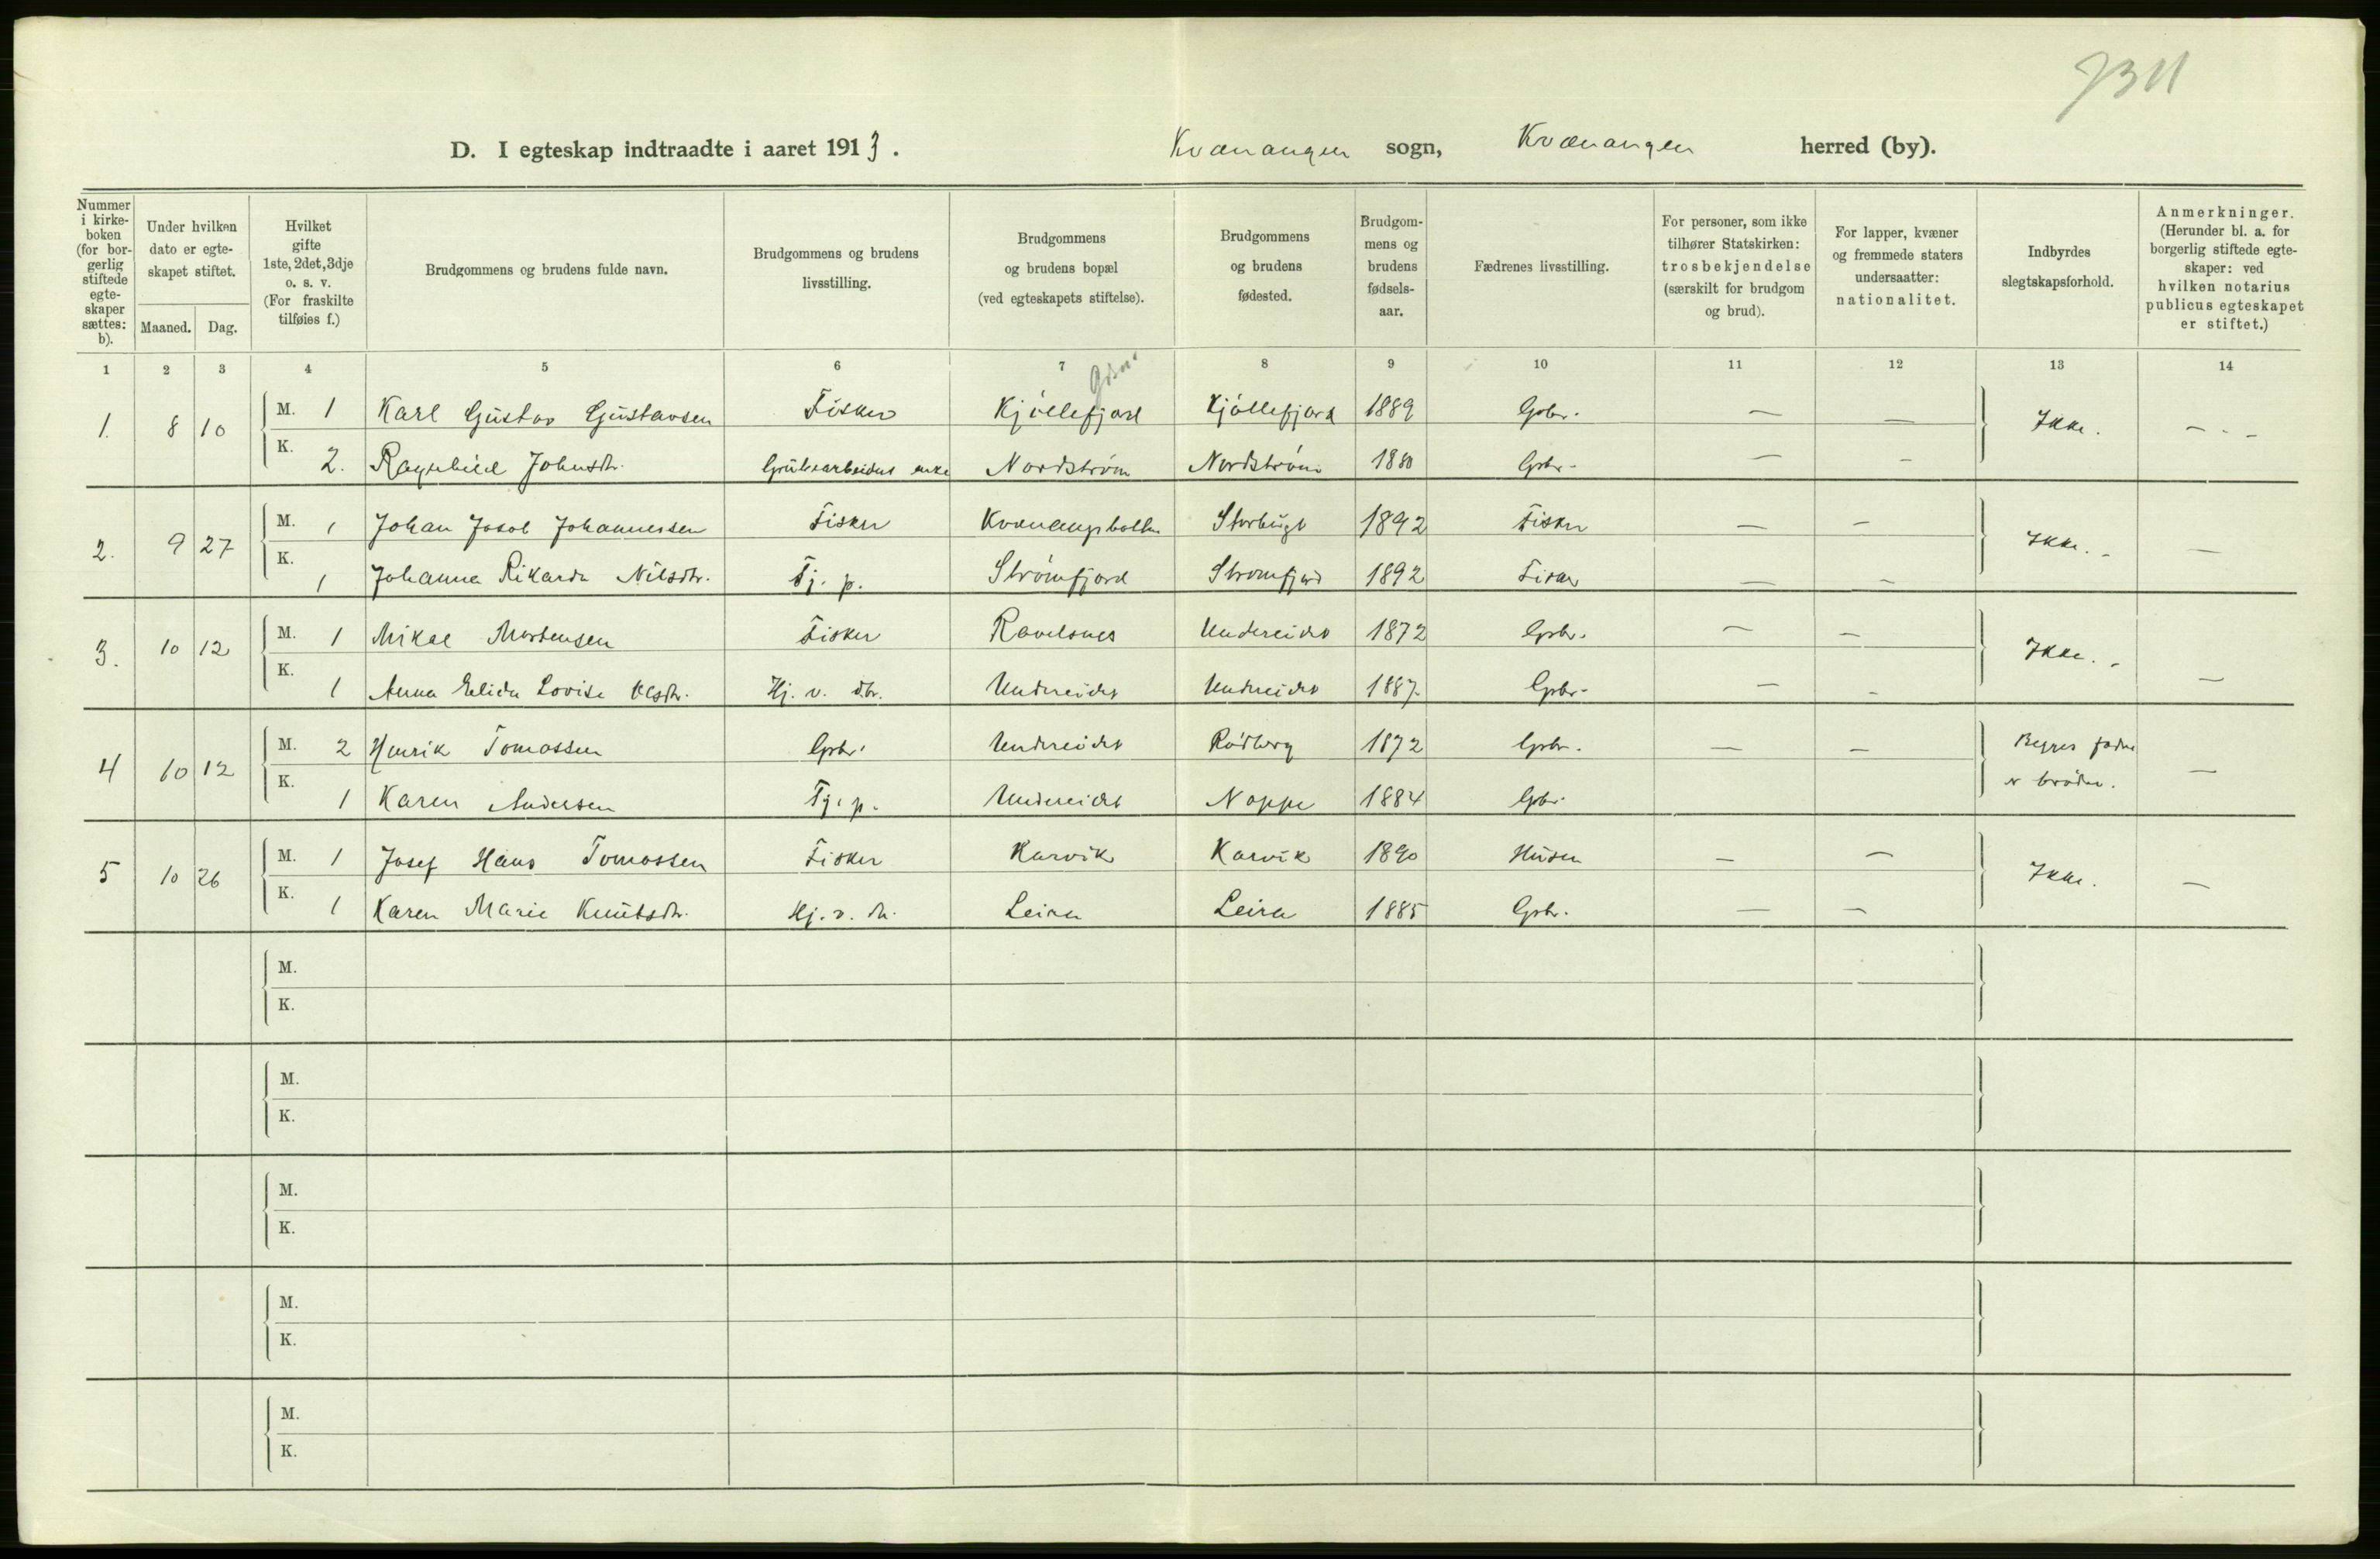 7311
D. I egteskap indtraadte i aaret 1913. Kvænangen sogn, Kvænangen herred (by).
Nummer i kirke-boken (for bor-gerlig stiftede egte-skaper sættes: b).
Under hvilken dato er egte-skapet stiftet.
Maaned. Dag.
Hvilket gifte 1ste, 2det, 3dje o. s. v. (For fraskilte tilføies f.)
Brudgommens og brudens fulde navn.
Brudgommens og brudens livsstilling.
Brudgommens og brudens bopæl (ved egteskapets stiftelse).
Brudgommens og brudens fødested.
Brudgom-mens og brudens fødsels-aar.
Fædrenes livsstilling.
For personer, som ikke tilhører Statskirken: trosbekjendelse (særskilt for brudgom og brud).
For lapper, kvæner og fremmede staters undersaatter: nationalitet.
Indbyrdes slegtskapsforhold.
Anmerkninger. (Herunder bl. a. for borgerlig stiftede egte-skaper: ved hvilken notarius publicus egteskapet er stiftet.)
1 2 3 4 5 6 7 8 9 10 11 12 13 14
1. 8 10 M. 1 Karl Gustav Gustavsen Fisker Kjøllefjord Kjøllefjord 1889 Gbr. — — Ikke. - - -
K. 2. Ragnhild Johnsdtr. Grubearbeiders enke Nordstrøm Nordstrøm 1880 Gbr. — -
2. 9 27 M. 1 Johan Jakob Johannessen Fisker Kvænangsbotten Storbugt 1892 Fisker — — Ikke. - —
K. 1 Johanna Rikarda Nilsdtr. Tj. p. Strømfjord Strømfjord 1892 Fisker — -
3. 10 12 M. 1 Mikal Mortensen Fisker Ravelsnes Undereidet 1872 Gbr. — — Ikke. - —
K. 1 Anna Elida Lovise Olsdtr. Hj. v. dtr. Undereidet Undereidet 1887 Gbr. — -
4 10 12 M. 2 Henrik Tomassen Gbr. Undereidet Rødberg 1872 Gbr. — — Begges fædre
K. 1 Karen Andersen Tj. p. Undereidet Noppe 1884 Gbr. er brødre. —
5 10 26 M. 1 Josef Hans Tomassen Fisker Karvik Karvik 1890 Husm — — Ikke. —
K. 1 Karen Marie Knutsdtr. Hj. v. dtr. Leira Leira 1885 Gbr. — —
M.
K.
M.
K.
M.
K.
M.
K.
M.
K.